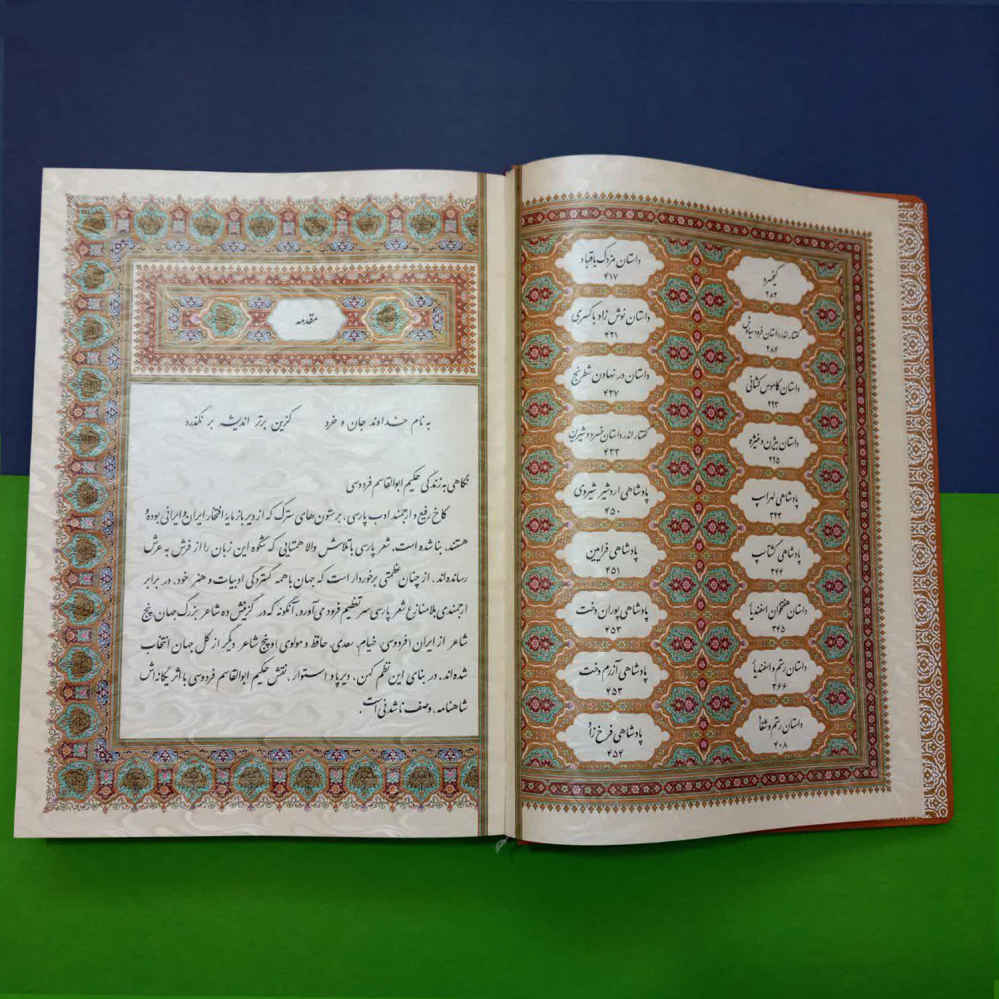 کیخسرو
۲۸۲
گفتار اندر داستان فرود سیاوش
۲۸۶
داستان کاموس کشانی
۲۹۳
داستان بیژن و منیژه
۲۹۵
پادشاهی لهراسپ
۳۲۳
پادشاهی گشتاسپ
۳۴۴
داستان هفتخوان اسفندیار
۳۴۵
داستان رستم و اسفندیار
۳۶۶
داستان رستم و شغاد
۴۰۸
داستان مزدک با قباد
۴۱۷
داستان نوش زاد با کسری
۴۲۱
داستان در نهادن شطرنج
۴۲۷
گفتار اندر داستان خسرو و شیرین
۴۳۳
پادشاهی اردشیر شیروی
۴۵۰
پادشاهی فرایین
۴۵۱
پادشاهی پوران دخت
۴۵۳
پادشاهی آزرم دخت
۴۵۳
پادشاهی فرخ زاد
۴۵۴
مقدمه
به نام خداوند جان و خرد کزین برتر اندیشه بر نگذرد
نگاهی به زندگی حکیم ابوالقاسم فردوسی
کاخ رفیع و ارجمند ادب پارسی، بر ستون های سترگ که از دیرباز مایهٔ افتخار ایران و ایرانی بوده و
هستند، بنا شده است. شعر پارسی با تلاش والا همتانی که شکوه این زبان را از فرش به عرش
رسانده‌اند، از چنان عظمتی برخوردار است که جهان با همه گستردگی ادبیات و هنر خود، در برابر
ارجمندی بلامنازع شعر پارسی سر تعظیم فرود می آورد، آنگونه که در گزینش ده شاعر بزرگ جهان پنج
شاعر از ایران (فردوسی، خیام، سعدی، حافظ و مولوی) و پنج شاعر دیگر از کل جهان انتخاب
شده‌اند. در بنای این نظم کهن، دیرپا و استوار، نقش حکیم ابوالقاسم فردوسی با اثر یگانه‌اش
شاهنامه، وصف ناشدنی است.